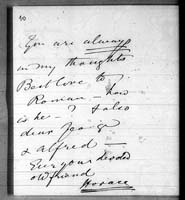 You are always
in my thoughts
Best love to
Roman - how
is he - ? & also
dear
& Alfred -
Ever your devoted
old friend
Horace